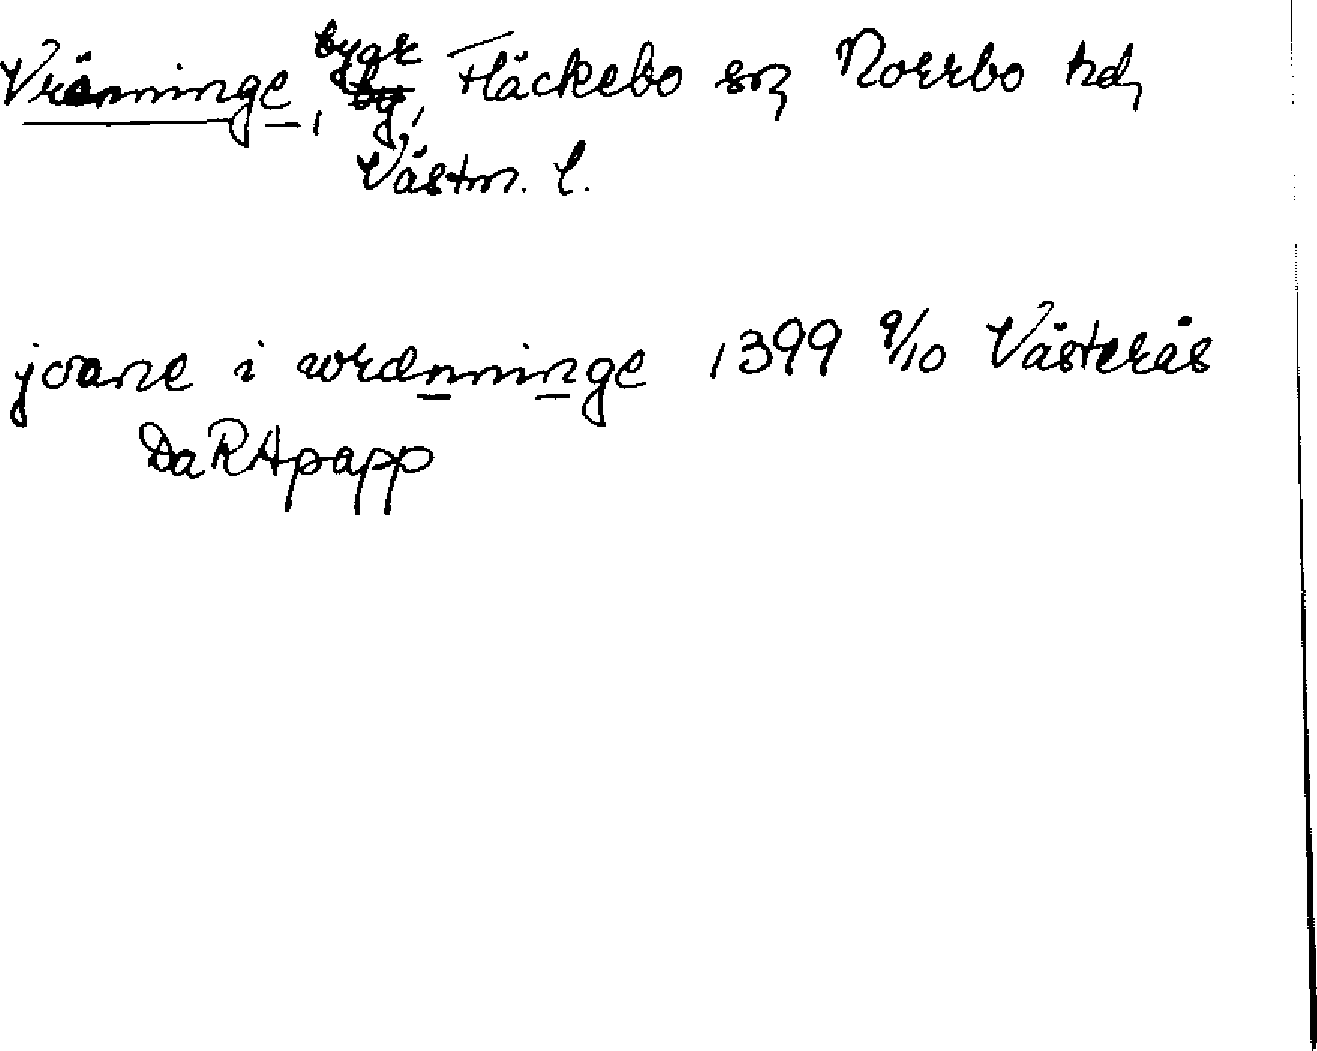 Vränninge, bygr, Fläckebo sn, Norrbo hd,
Västm. l.
joane i wrænninge 1399 9/10 Västerås
Da RApapp